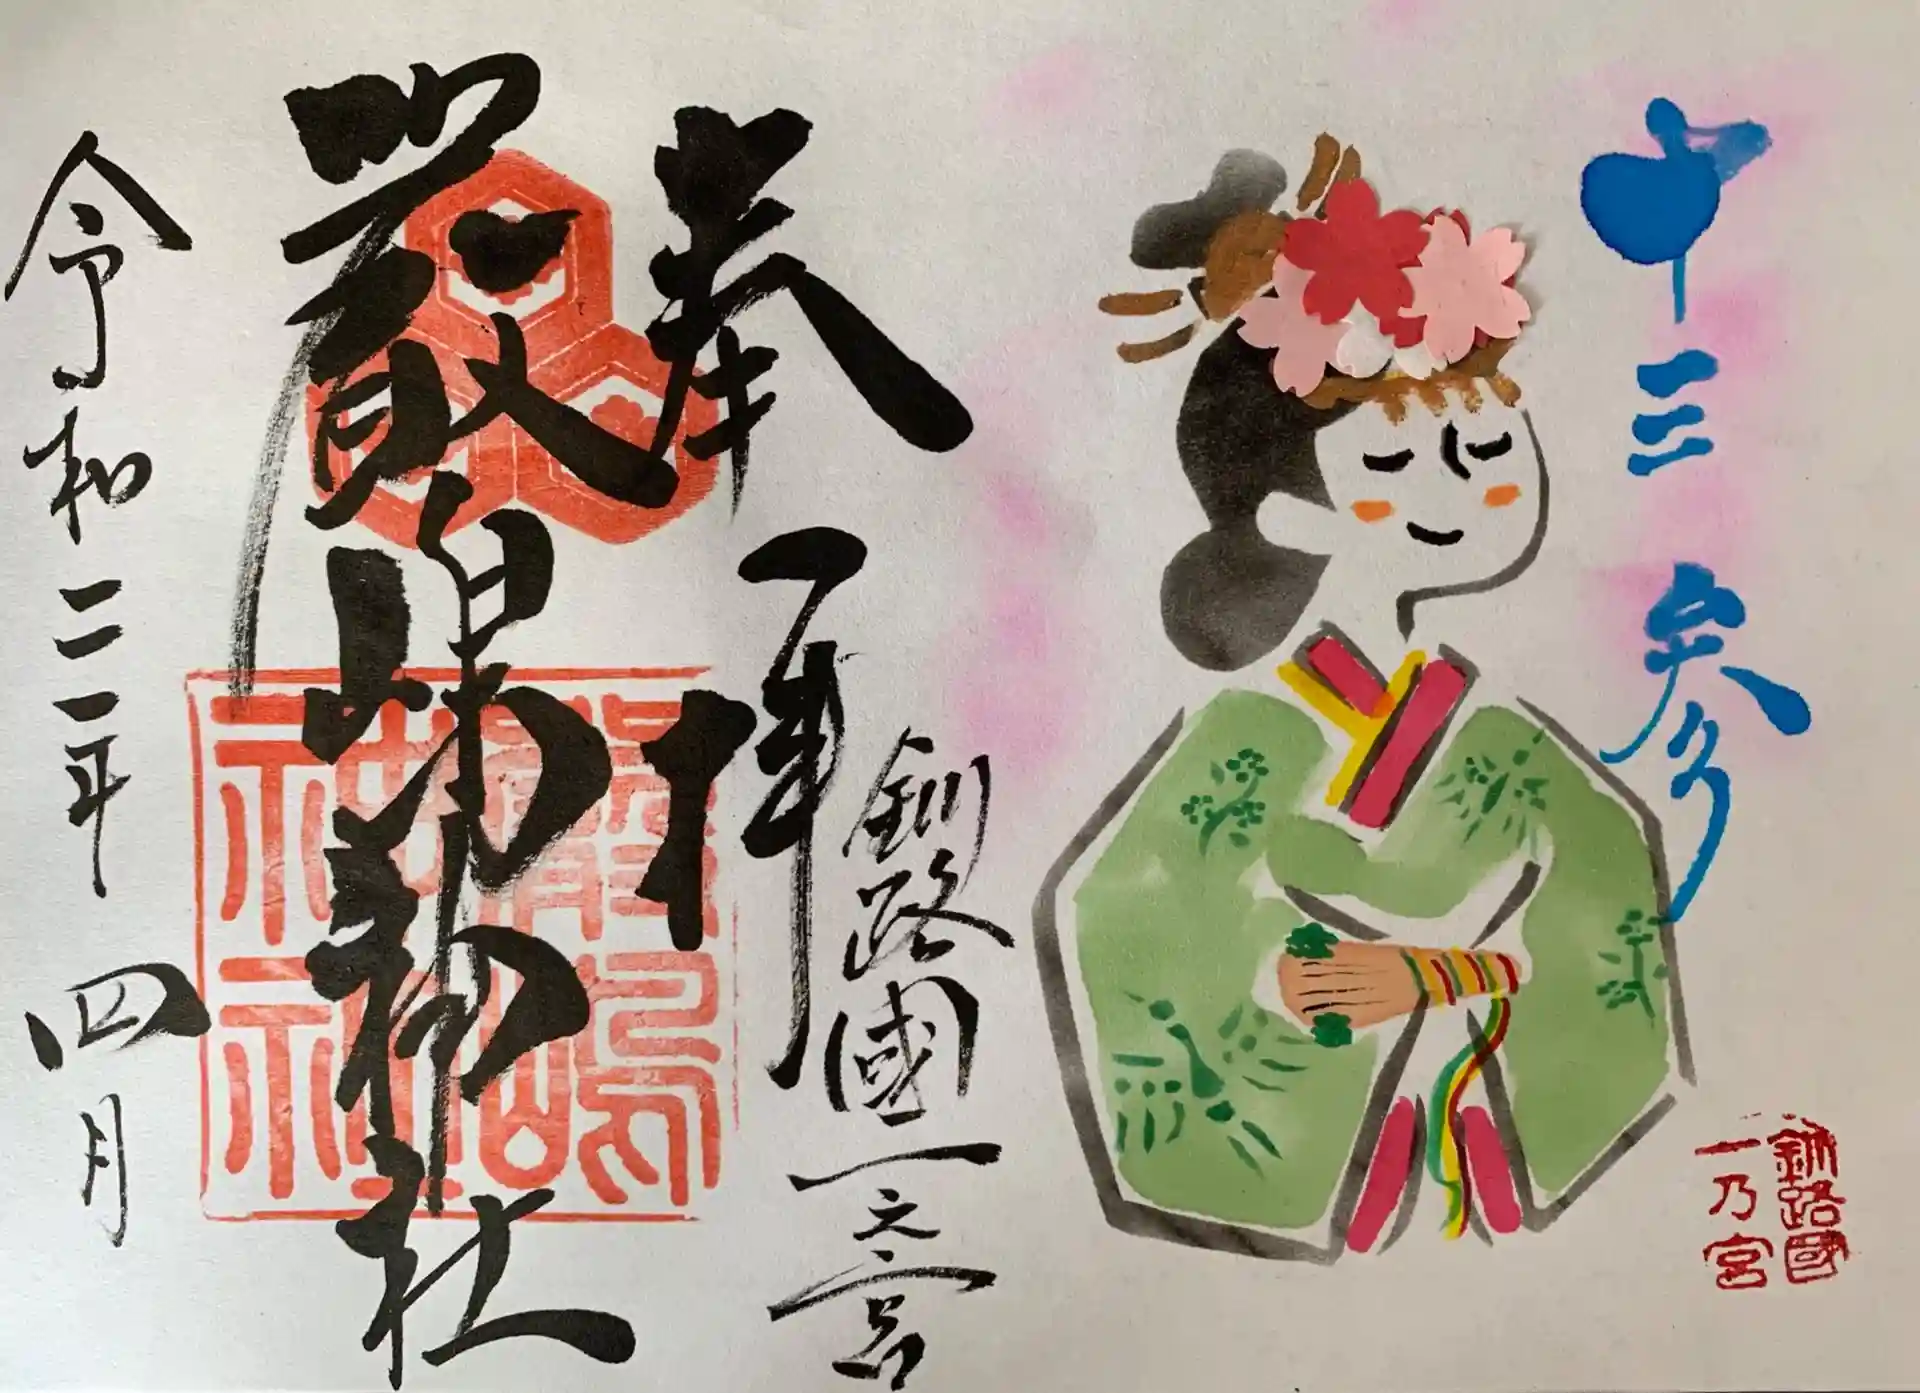 十三参
釧路國
一乃宮
奉拝
釧路國一之宮
厳島神社
令和二年四月